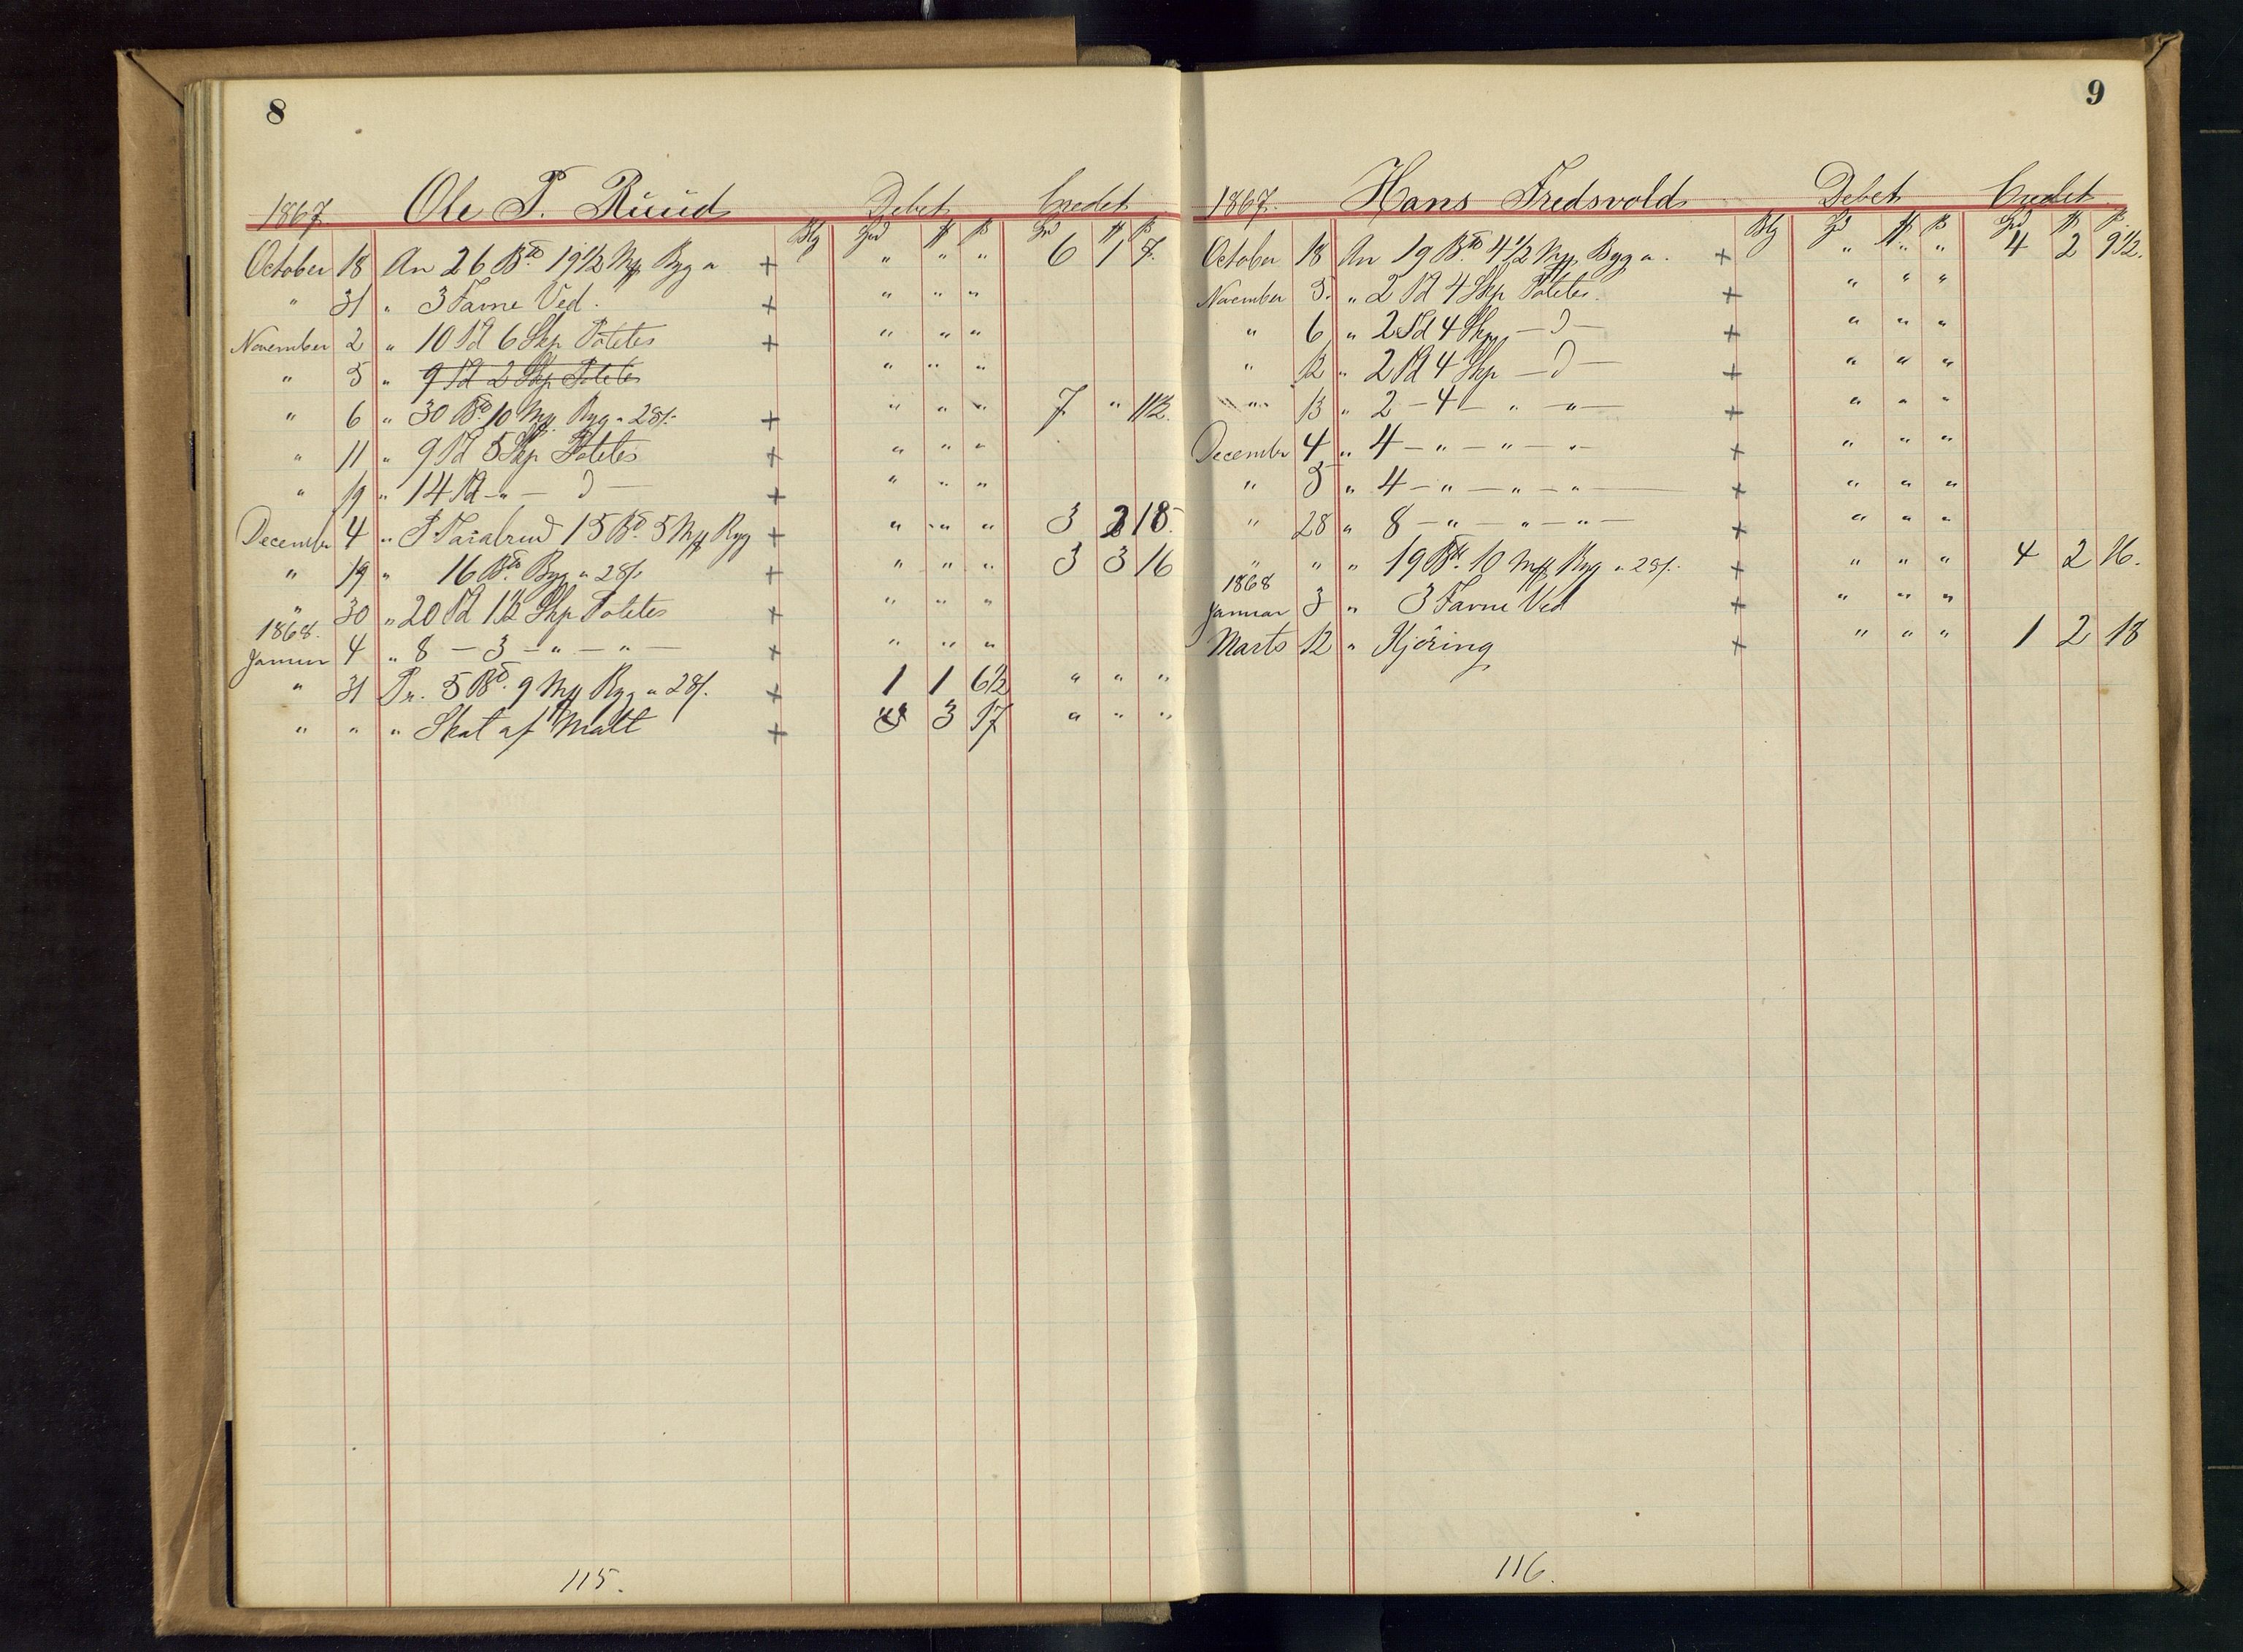 8
1867. Ole P. Ruud Debet Credet
Blg Spd # ß Spd # ß
October 18 An 26 Bd 19 1/2 Mk Byg a + " " " 6 1 7.
" 31 " 3 Favne Ved. + " " "
November 2 " 10 Td 6 Skp Potetes + " " "
" 5 " 9 Td 2 Skp Potetes " " "
" 6 " 30 Bd. 10 Mk Byg a 28 ß. + " " " 7 " 11 1/2.
" 11 " 9 Td 5 Skp Potetes + " " "
" 19 " 14 Td - " - D - + " " "
December 4 " P 15 Bd. 5 Mk Byg + " " " 3 2 18.
" 19 " 16 Bd. Byg a 28 ß. + " " " 3 3 16
" 30 " 20 Td 1 1/2 Skp Potetes + " " "
1868.
Januar 4 " 8 - 3 - " - " - + " " "
" 31 Pr. 5 Bd. 9 Mk Byg a 28 ß. + 1 1 6 1/2 " " "
" " " Skat af Malt + " 3 17 " " "
115.
9
1867. Hans Fredsvold Debet Credet
Blg Spd # ß Spd # ß
October 18 An 19 Bd. 4 1/2 Mk Byg a. + " " " 4 2 9 1/2.
November 5. " 2 Td 4 Skp Potetes. + " " "
" 6 " 2 Td 4 Skp - D - + " " "
" 12 " 2 Td 4 Skp - D - + " " "
" 13 " 2 - 4 - " - " - + " " "
December 4 " 4 - " - " - " - + " " "
" 5 " 4 - " - " - " - + " " "
" 28 " 8 - " - " - " - + " " "
" " " 19 Bd. 10 Mk Byg a 28 ß. + " " " 4 2 16.
1868
Januar 3 " 3 Favne Ved + " " "
Marts 12 " Kjöring + " " " 1 2 18
116.